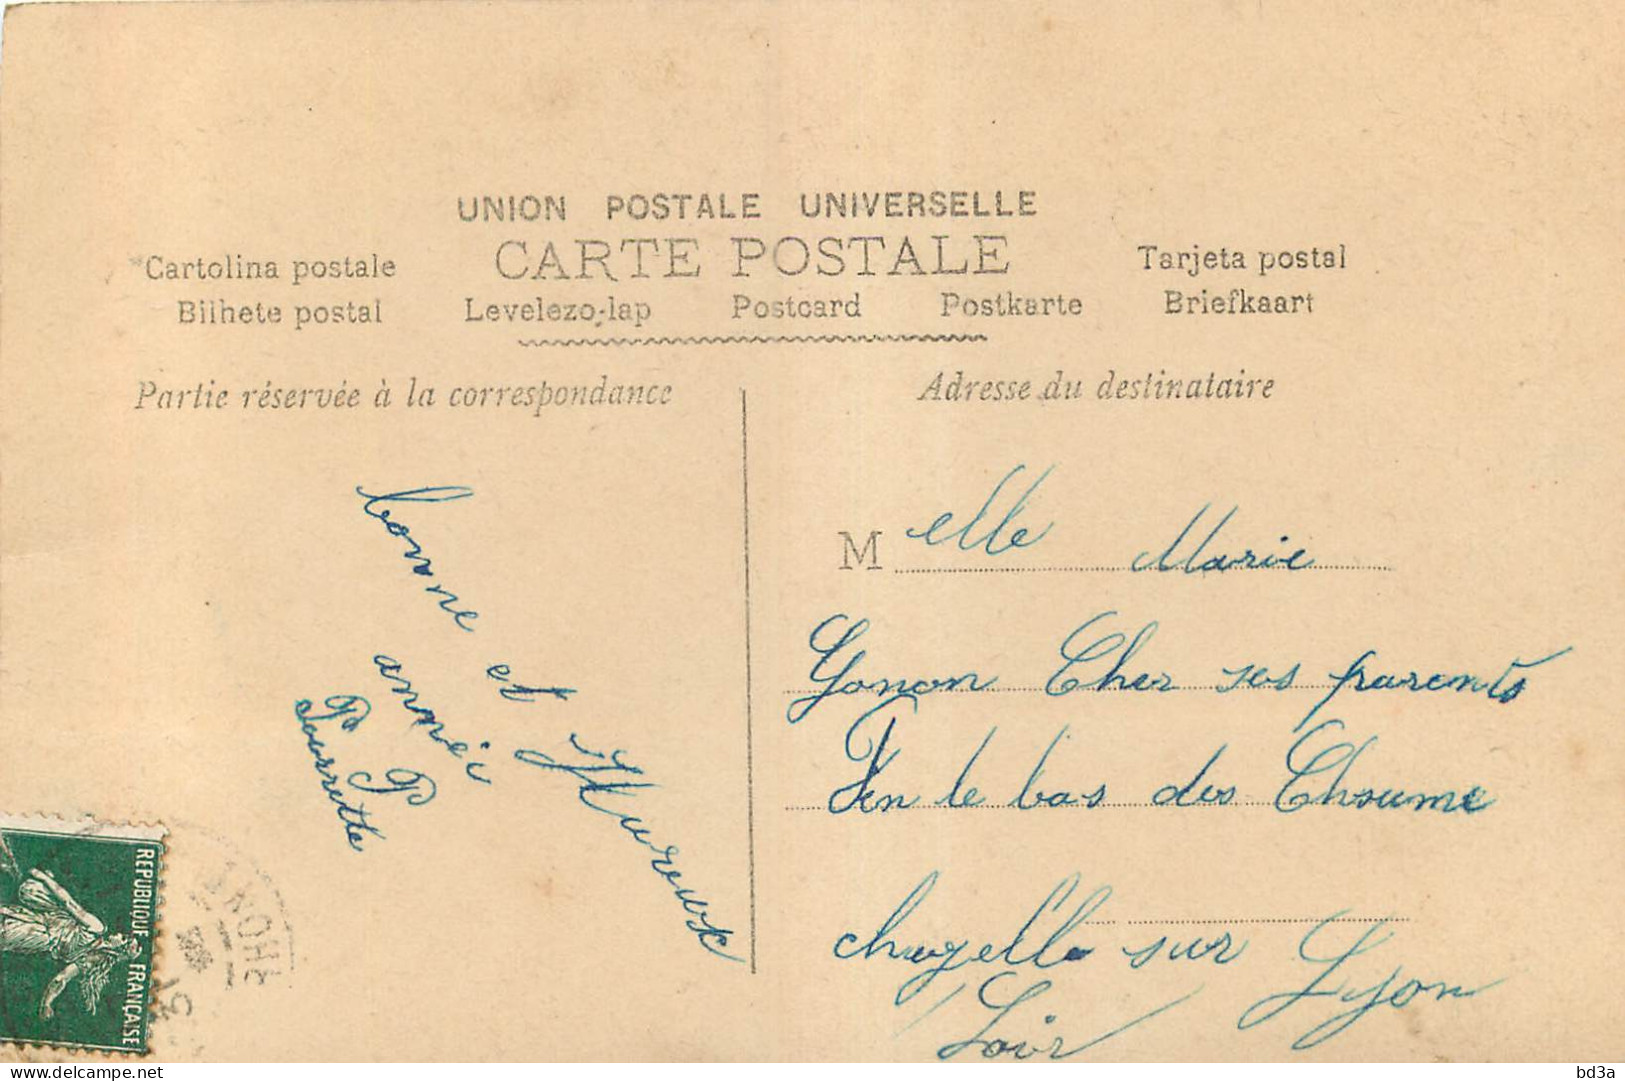 UNION POSTALE UNIVERSELLE
CARTE POSTALE
Cartolina postale
Tarjeta postal
Bilhete postal Levelezo-lap Postcard Postkarte Briefkaart
Partie réservée à la correspondance
bonne et Hureuse
annéi
P P
Pourrette
Adresse du destinataire
M elle Marie
Gonon Cher ses parents
en le bas des Chaume
chapelle sur Lyon
Loir
REPUBLIQUE FRANÇAISE
bd3a